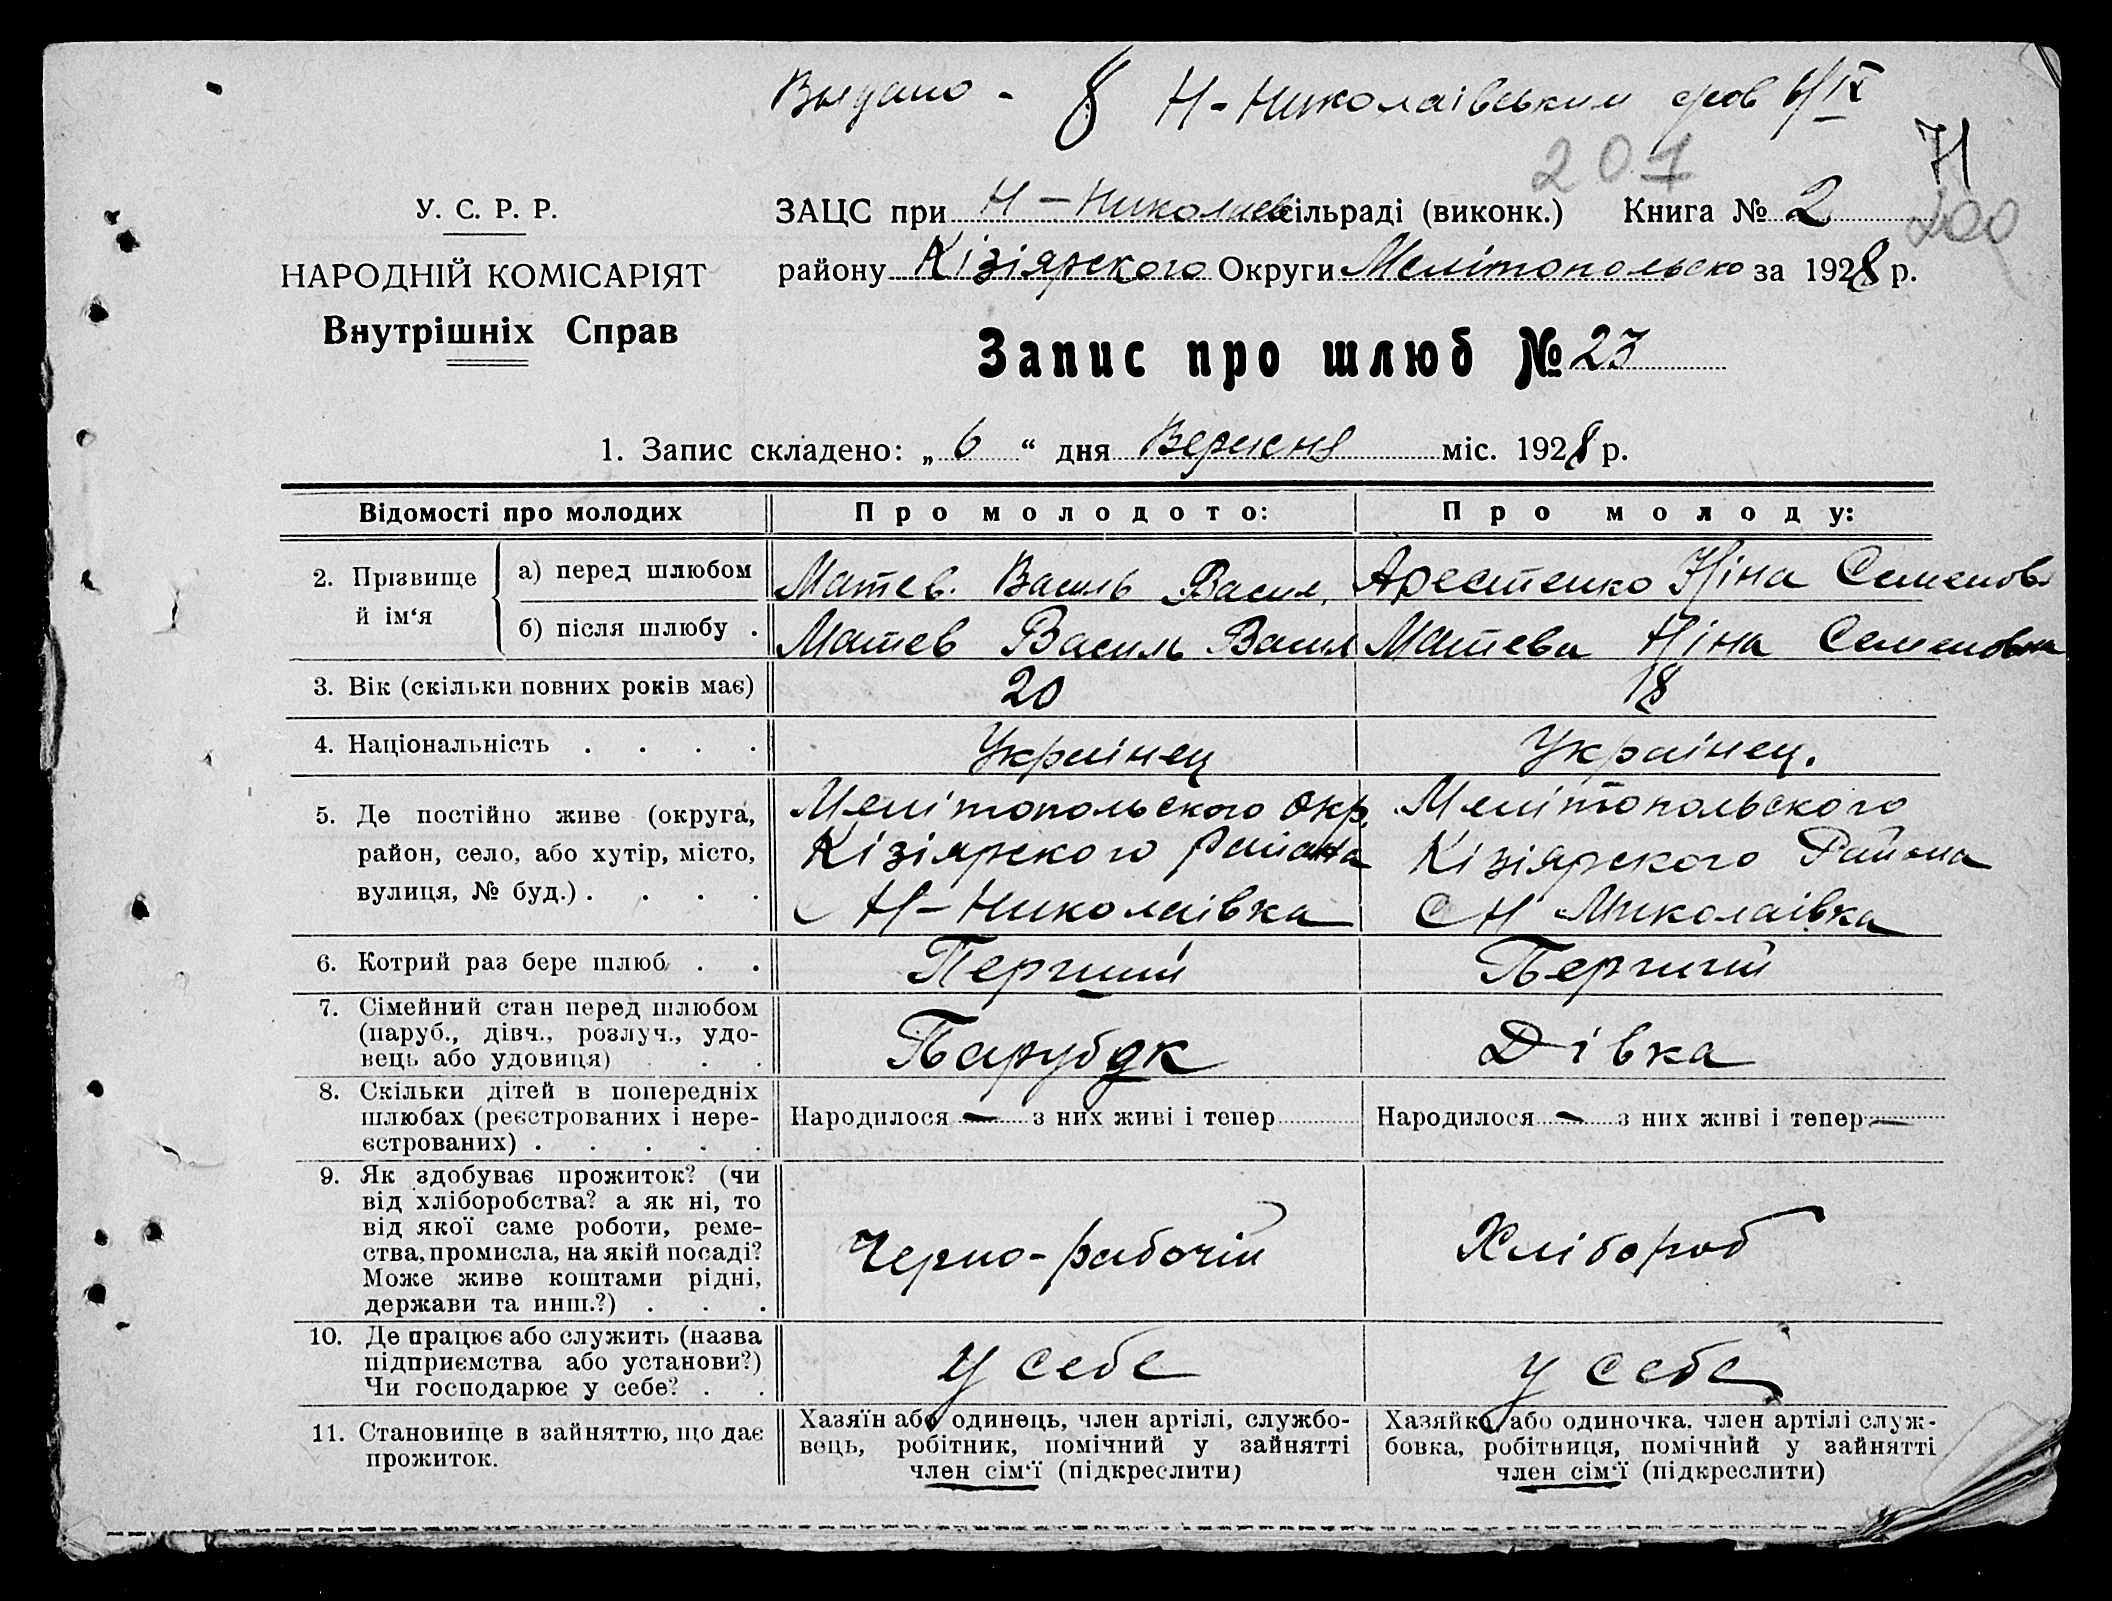 Выдано - 8 Н-Николаівським
201
71
200
У. С. Р. Р.
НАРОДНІЙ КОМІСАРІЯТ
Внутрішніх Справ
ЗАЦС при Н-Николаев сільраді (виконк.) Книга № 2
району Кізіярского Округи Мелітопольско за 1928 р.
Запис про шлюб № 23
1. Запис складено: „ 6 “ дня Вересня міс. 1928 р.
Відомості про молодих Про молодого: Про молоду:
2. Прізвище й ім‘я
а) перед шлюбом Матев. Василь Васил. Арестенко Ніна Семенов
б) після шлюбу . Матев Василь Васил Матева Ніна Семеновна
3. Вік (скільки повних років має) 20 18
4. Національність . . . . Украінец Украінец.
5. Де постійно живе (округа, Мелітопольского окр. Мелітопольского
район, село, або хутір, місто, Кізіярского Района Кізіярского Района
вулиця, № буд.) . . . . С Н-Николаівка С Н Миколаівка
6. Котрий раз бере шлюб . . Перший Перший
7. Сімейний стан перед шлюбом
(паруб., дівч., розлуч., удо-
вець або удовиця) . . Парубок Дівка
8. Скільки дітей в попередніх
шлюбах (реєстрованих і нере-
єстрованих) . . . . .
Народилося — з них живі і тепер Народилося — з них живі і тепер —
9. Як здобуває прожиток? (чи
від хліборобства? а як ні, то
від якої саме роботи, реме-
ства, промисла, на якій посаді?
Може живе коштами рідні,
держави та инш.?) . . .
Черно-рабочій Хлібороб
10. Де працює або служить (назва
підприємства або установи?)
Чи господарює у себе? . .
у себе у себе
11. Становище в зайняттю, що дає
прожиток.
Хазяїн або одинець, член артілі, службо-
вець, робітник, помічний у зайнятті
член сім‘ї (підкреслити)
Хазяйка або одиночка. член артілі служ-
бовка, робітниця, помічний у зайнятті
член сім‘ї (підкреслити)